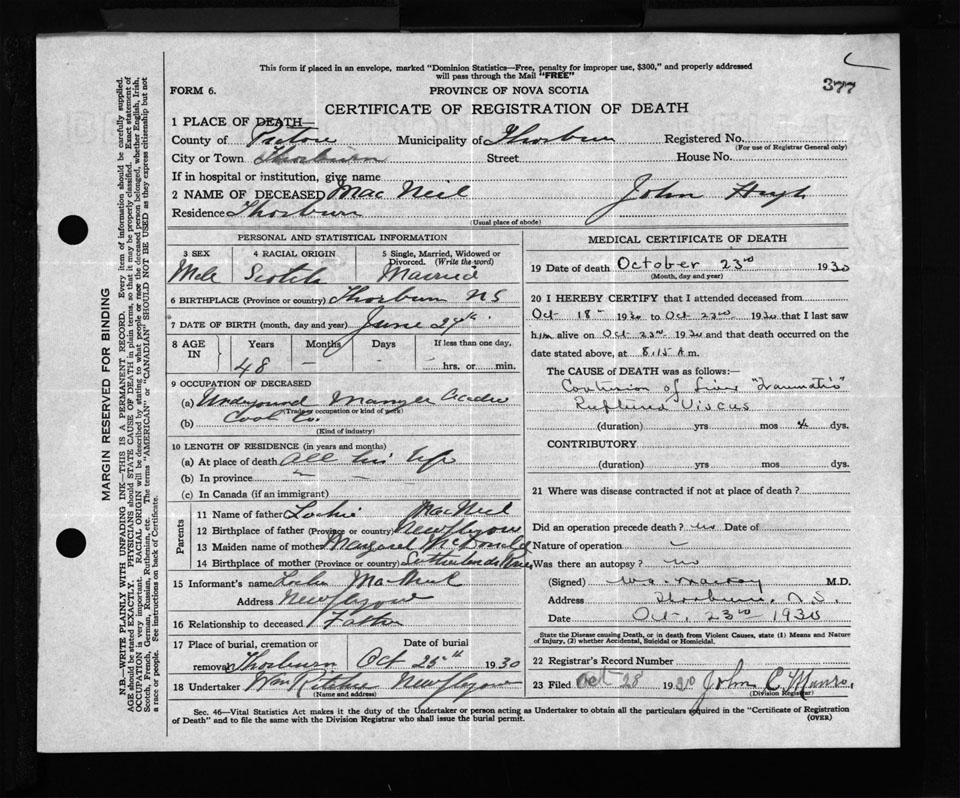 This form if placed in an envelope, marked "Dominion Statistics—Free, penalty for improper use, $300," and properly addressed
will pass through the Mail "FREE"
377
FORM 6.
PROVINCE OF NOVA SCOTIA
CERTIFICATE OF REGISTRATION OF DEATH
1 PLACE OF DEATH—
County of Pictou Municipality of Thorburn Registered No.
(For use of Registrar General only)
City or Town Thorburn Street House No.
If in hospital or institution, give name
2 NAME OF DECEASED Mac Neil John Hugh
Residence Thorburn
(Usual place of abode)
PERSONAL AND STATISTICAL INFORMATION
3 SEX 4 RACIAL ORIGIN 5 Single, Married, Widowed or Divorced (Write the word)
Male Scotch Married
6 BIRTHPLACE (Province or country) Thorburn NS
7 DATE OF BIRTH (month, day and year) June 27th
8 AGE IN Years Months Days If less than one day,
48 - - hrs. or min.
9 OCCUPATION OF DECEASED
(a) Underground Manager Acadia
(Trade or occupation or kind of work)
(b) Coal Co.
(Kind of industry)
10 LENGTH OF RESIDENCE (in years and months)
(a) At place of death all his life
(b) In province
(c) In Canada (if an immigrant)
Parents
11 Name of father Lochie MacNeil
12 Birthplace of father (Province or country) New Glasgow
13 Maiden name of mother Margaret McDonald
14 Birthplace of mother (Province or country) Sutherlands River
15 Informant's name Lochie MacNeil
Address New Glasgow
16 Relationship to deceased Father
17 Place of burial, cremation or removal Date of burial
Thorburn Oct 25th 1930
18 Undertaker Wm Ritchie New Glasgow
(Name and address)
MEDICAL CERTIFICATE OF DEATH
19 Date of death October 23rd 1930
(Month, day and year)
20 I HEREBY CERTIFY that I attended deceased from
Oct 18th 1930 to Oct 23rd 1930 that I last saw
him alive on Oct 23rd 1930 and that death occurred on
date stated above, at 8.15 A m.
The CAUSE of DEATH was as follows:
Contusion of Liver "Traumatic"
Ruptured Viscus
(duration) yrs mos 4 dys.
CONTRIBUTORY
(duration) yrs. mos. dys.
21 Where was disease contracted if not at place of death?
Did an operation precede death? no Date of
Nature of operation -
Was there an autopsy? no
(Signed) M.D.
Address Thorburn, N.S.
Date Oct. 23rd 1930
State the Disease causing Death, or in death from Violent Causes, state (1) Means and Nature
of Injury, (2) whether Accidental, Suicidal or Homicidal.
22 Registrar's Record Number
23 Filed Oct 28 1930 John C. Munro,
(Division Registrar)
Sec. 46—Vital Statistics Act makes it the duty of the Undertaker or person acting as Undertaker to obtain all the particulars required in the "Certificate of Registration
of Death" and to file the same with the Division Registrar who shall issue the burial permit.
(OVER)
MARGIN RESERVED FOR BINDING
N.B.—WRITE PLAINLY WITH UNFADING INK—THIS IS A PERMANENT RECORD. Every item of information should be carefully supplied.
AGE should be stated EXACTLY. PHYSICIANS should STATE CAUSE OF DEATH in plain terms, so that it may be properly classified. Exact statement of
OCCUPATION is very important. RACIAL ORIGIN will be described by stating to what people or race the deceased person belonged, whether English, Irish,
Scotch, French, German, Russian, Ruthenian, etc. The terms "AMERICAN" or "CANADIAN" SHOULD NOT BE USED as they express citizenship but not
a race or people. See instructions on back of Certificate.